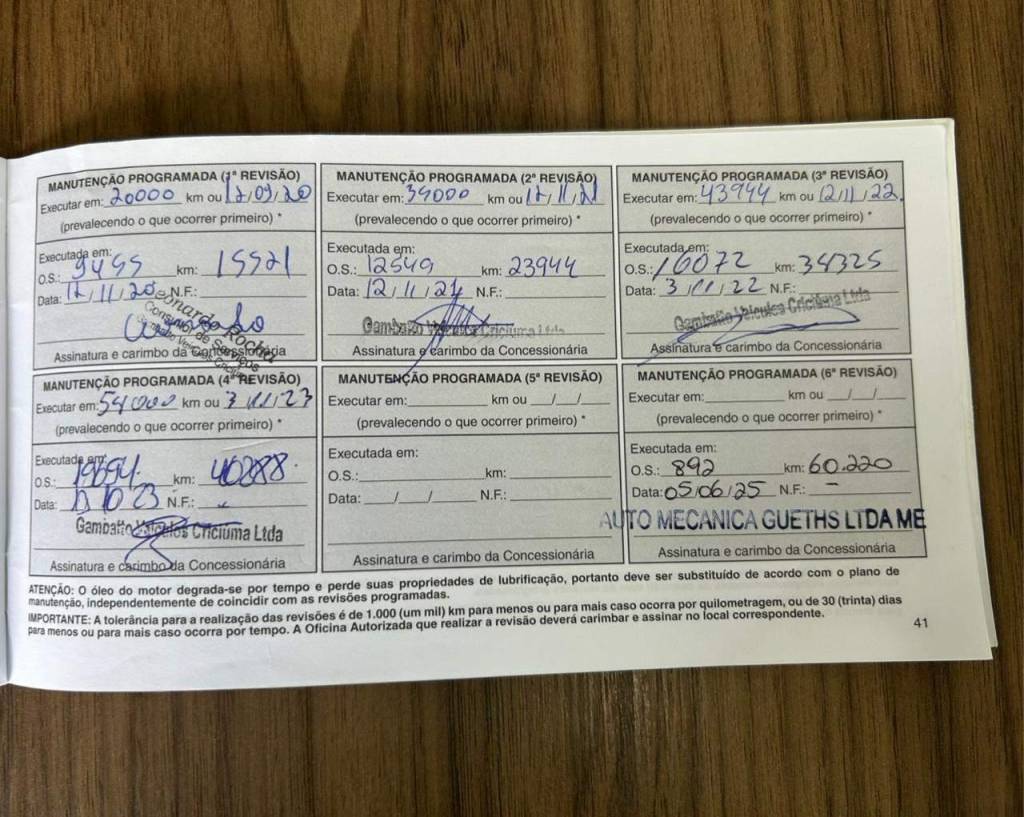 MANUTENÇÃO PROGRAMADA (1ª REVISÃO)
Executar em: 20000 km ou 12/09/20
(prevalecendo o que ocorrer primeiro) *
Executada em:
O.S.: 9455 km: 15521
Data: 12/11/20 N.F.:
Leonardo Rocha
Consultor de Serviços
Assinatura e carimbo da Concessionária
MANUTENÇÃO PROGRAMADA (2ª REVISÃO)
Executar em: 34000 km ou 12/11/21
(prevalecendo o que ocorrer primeiro) *
Executada em:
O.S.: 12549 km: 23944
Data: 12/11/21 N.F.:
Gambatto Veiculos Criciuma Ltda
Assinatura e carimbo da Concessionária
MANUTENÇÃO PROGRAMADA (3ª REVISÃO)
Executar em: 43944 km ou 12/11/22
(prevalecendo o que ocorrer primeiro) *
Executada em:
O.S.: 16072 km: 34325
Data: 3/11/22 N.F.:
Gambatto Veiculos Criciuma Ltda
Assinatura e carimbo da Concessionária
MANUTENÇÃO PROGRAMADA (4ª REVISÃO)
Executar em: 54000 km ou 3/11/23
(prevalecendo o que ocorrer primeiro) *
Executada em:
O.S.: 19694 km: 40288
Data: 10 23 N.F.:
Gambatto Veiculos Criciuma Ltda
Assinatura e carimbo da Concessionária
MANUTENÇÃO PROGRAMADA (5ª REVISÃO)
Executar em: km ou / /
(prevalecendo o que ocorrer primeiro) *
Executada em:
O.S.: km:
Data: / / N.F.:
Assinatura e carimbo da Concessionária
MANUTENÇÃO PROGRAMADA (6ª REVISÃO)
Executar em: km ou / /
(prevalecendo o que ocorrer primeiro) *
Executada em:
O.S.: 892 km: 60.220
Data: 05/06/25 N.F.: -
AUTO MECANICA GUETHS LTDA ME
Assinatura e carimbo da Concessionária
ATENÇÃO: O óleo do motor degrada-se por tempo e perde suas propriedades de lubrificação, portanto deve ser substituído de acordo com o plano de
manutenção, independentemente de coincidir com as revisões programadas.
IMPORTANTE: A tolerância para a realização das revisões é de 1.000 (um mil) km para menos ou para mais caso ocorra por quilometragem, ou de 30 (trinta) dias
para menos ou para mais caso ocorra por tempo. A Oficina Autorizada que realizar a revisão deverá carimbar e assinar no local correspondente.
41